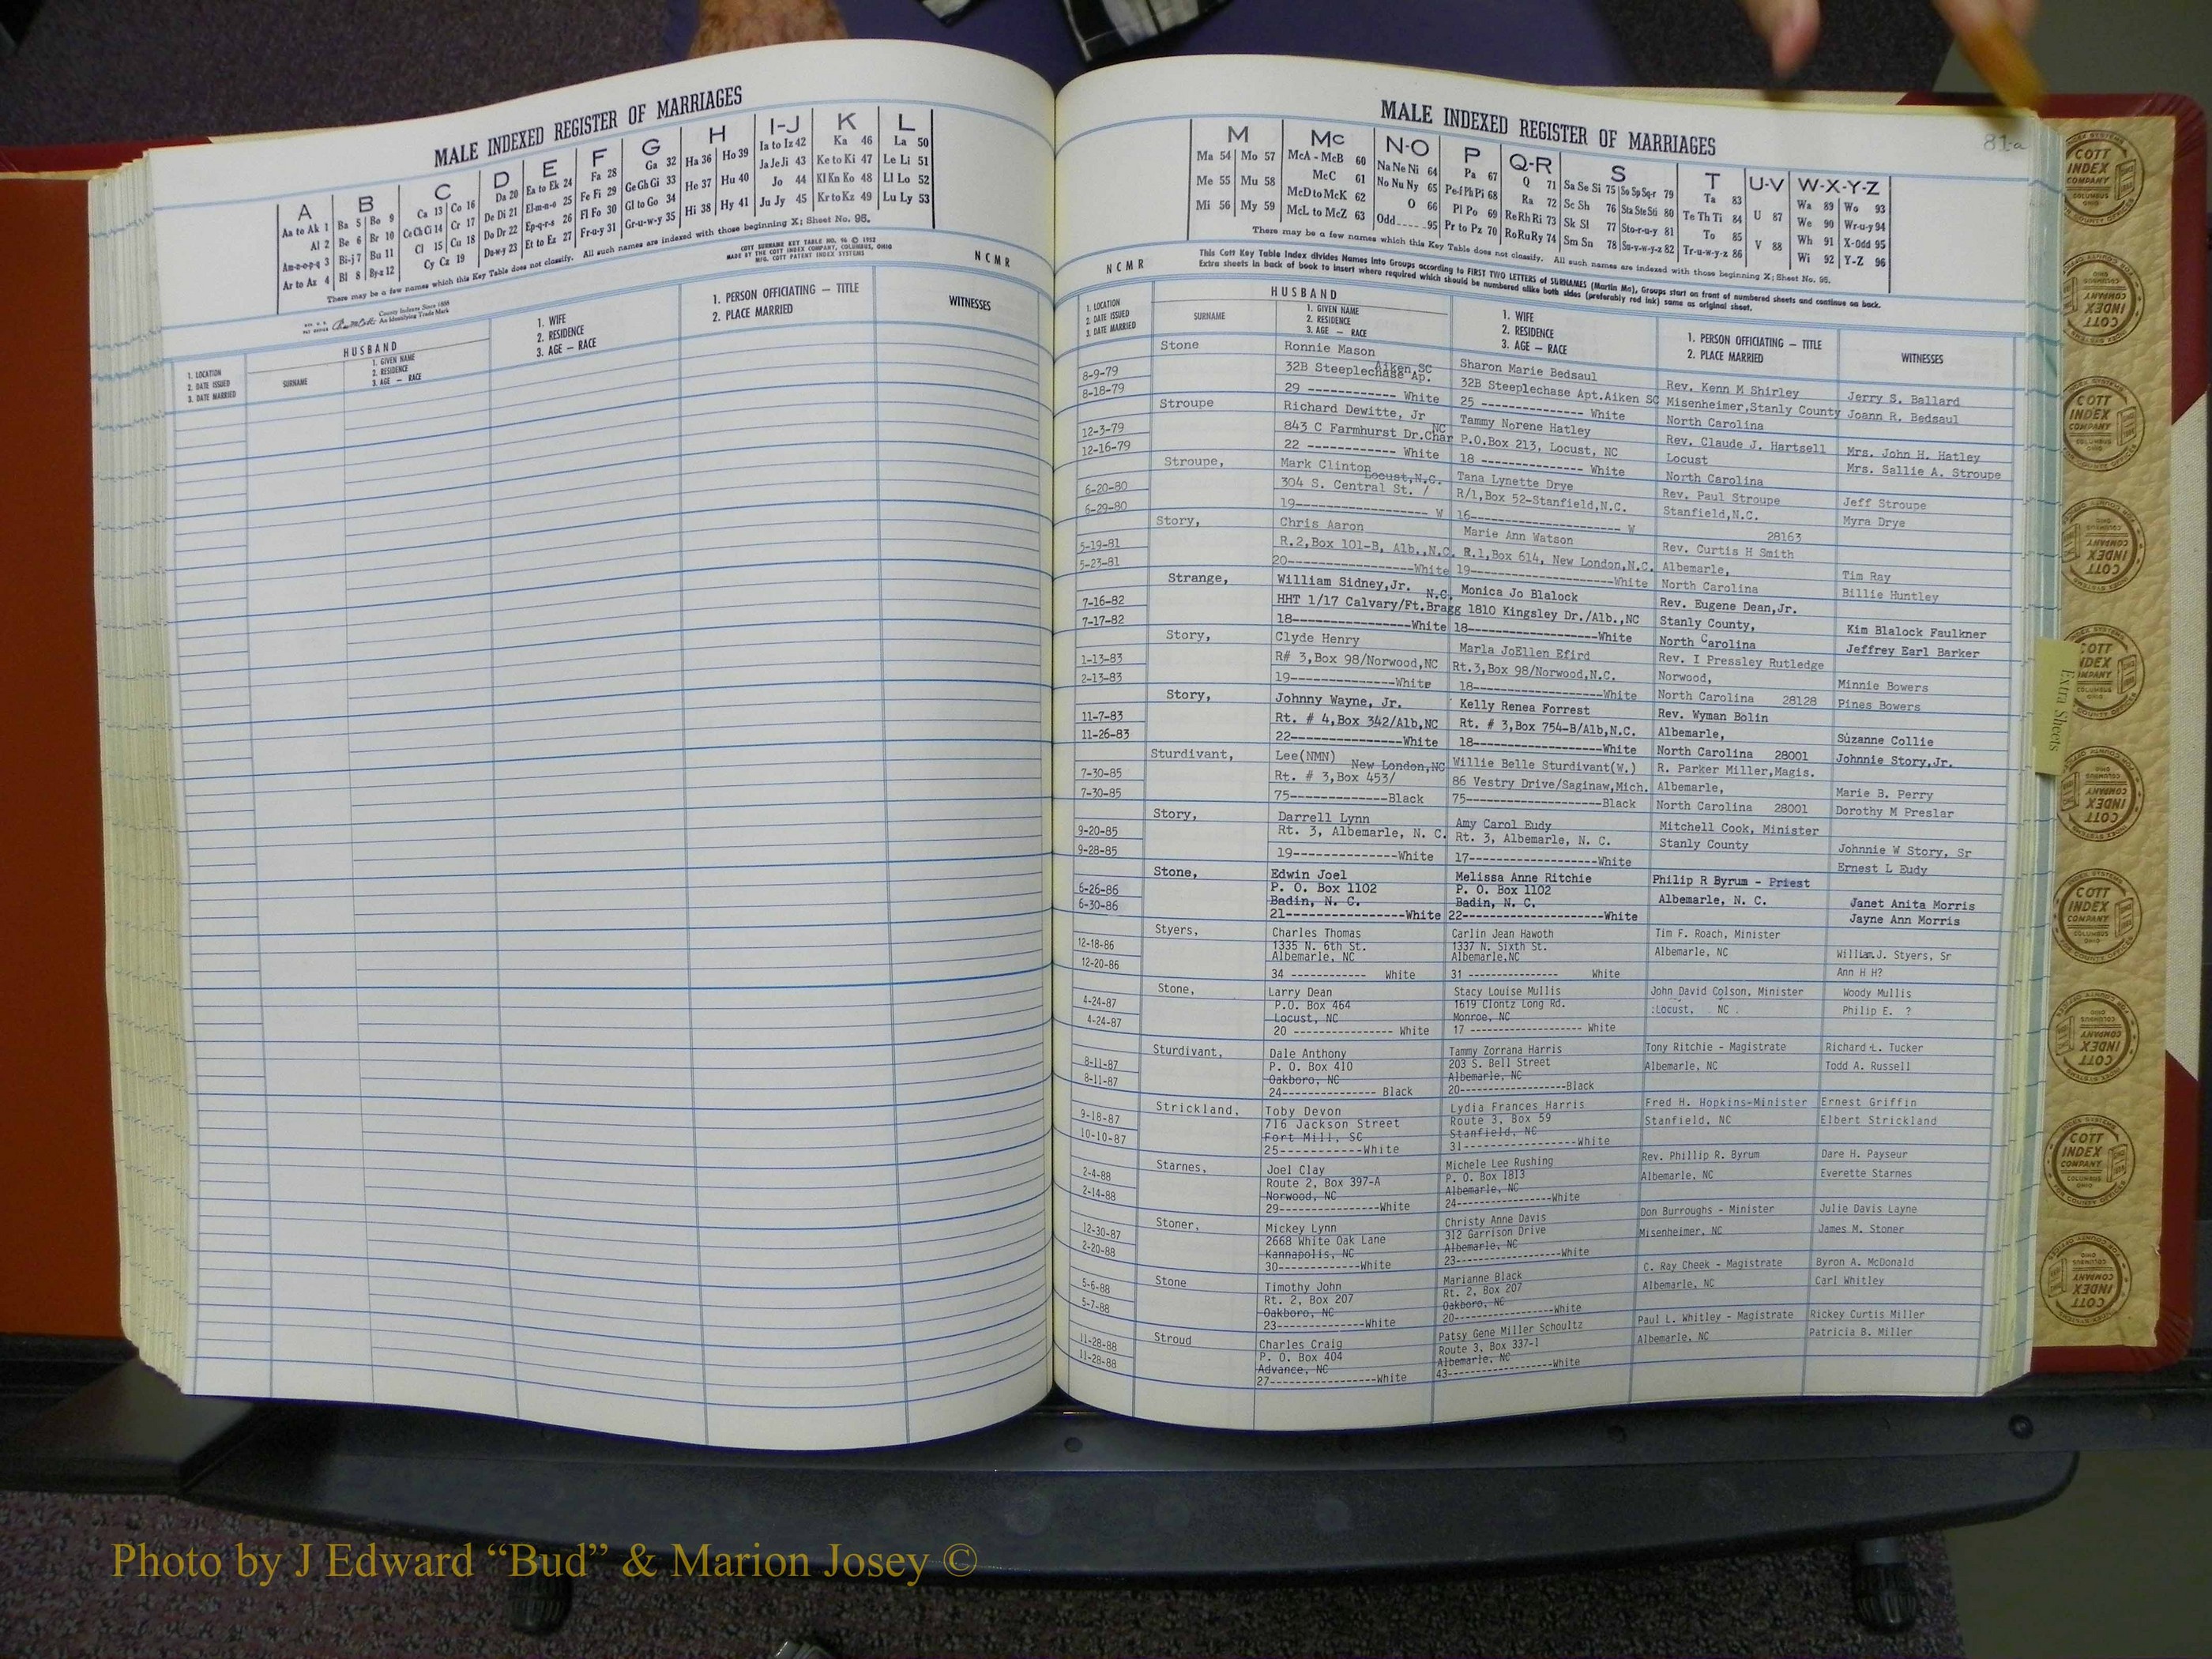 MALE INDEXED REGISTER OF MARRIAGES
A B C D E F G H I-J K L
Aa to Ak 1 Ba 5 Bo 9 Ca 13 Co 16 Da 20 Ea to Ek 24 Fa 28 Ga 32 Ha 36 Ho 39 Ia to Iz 42 Ka 46 La 50
Al 2 Be 6 Br 10 Ce Ch Ci 14 Cr 17 De Di 21 El-m-n-o 25 Fe Fi 29 Ge Gh Gi 33 He 37 Hu 40 Ja Je Ji 43 Ke to Ki 47 Le Li 51
Am-n-o-p-q 3 Bi-j 7 Bu 11 Cl 15 Cu 18 Do Dr 22 Ep-q-r-s 26 Fl Fo 30 Gl to Go 34 Hi 38 Hy 41 Jo 44 Kl Kn Ko 48 Ll Lo 52
Ar to Az 4 Bl 8 By-z 12 Cy Cz 19 Du-w-y 23 Et to Ez 27 Fr-u-y 31 Gr-u-w-y 35 Ju Jy 45 Kr to Kz 49 Lu Ly 53
There may be a few names which this Key Table does not classify. All such names are indexed with those beginning X; Sheet No. 95.
County Indexes Since 1888
An Identifying Trade Mark
COTT SURNAME KEY TABLE NO. 96 © 1952
MADE BY THE COTT INDEX COMPANY, COLUMBUS, OHIO
MFG. COTT PATENT INDEX SYSTEMS
NCMR
1. LOCATION
2. DATE ISSUED
3. DATE MARRIED
HUSBAND
SURNAME
1. GIVEN NAME
2. RESIDENCE
3. AGE — RACE
1. WIFE
2. RESIDENCE
3. AGE — RACE
1. PERSON OFFICIATING — TITLE
2. PLACE MARRIED
WITNESSES
MALE INDEXED REGISTER OF MARRIAGES
81-a
M Mc N-O P Q-R S T U-V W-X-Y-Z
Ma 54 Mo 57 McA - McB 60 Na Ne Ni 64 Pa 67 Q 71 Sa Se Si 75 So Sp Sq-r 79 Ta 83 Wa 89 Wo 93
Me 55 Mu 58 McC 61 No Nu Ny 65 Pe-f Ph Pi 68 Ra 72 Sc Sh 76 Sta Ste Sti 80 Te Th Ti 84 U 87 We 90 Wr-u-y 94
Mi 56 My 59 McD to McK 62 O 66 Pl Po 69 Re Rh Ri 73 Sk Sl 77 Sto-r-u-y 81 To 85 V 88 Wh 91 X-Odd 95
McL to McZ 63 Odd 95 Pr to Pz 70 Ro Ru Ry 74 Sm Sn 78 Su-v-w-y-z 82 Tr-u-w-y-z 86 Wi 92 Y-Z 96
There may be a few names which this Key Table does not classify. All such names are indexed with those beginning X; Sheet No. 95.
This Cott Key Table Index divides Names into Groups according to FIRST TWO LETTERS of SURNAMES (Martin Ma), Groups start on front of numbered sheets and continue on back.
Extra sheets in back of book to insert where required which should be numbered alike both sides (preferably red ink) same as original sheet.
NCMR
1. LOCATION
2. DATE ISSUED
3. DATE MARRIED
HUSBAND
SURNAME
1. GIVEN NAME
2. RESIDENCE
3. AGE — RACE
1. WIFE
2. RESIDENCE
3. AGE — RACE
1. PERSON OFFICIATING — TITLE
2. PLACE MARRIED
WITNESSES
Stone Ronnie Mason Sharon Marie Bedsaul Rev. Kenn M Shirley Jerry S. Ballard
8-9-79 32B Steeplechase Ap. Aiken,SC 32B Steeplechase Apt.Aiken SC Misenheimer,Stanly County Joann R. Bedsaul
8-18-79 29 ---------- White 25 -------------- White North Carolina
Stroupe Richard Dewitte, Jr Tammy Norene Hatley Rev. Claude J. Hartsell Mrs. John H. Hatley
12-3-79 843 C Farmhurst Dr.Char NC P.O.Box 213, Locust, NC Locust Mrs. Sallie A. Stroupe
12-16-79 22 ---------- White 18 -------------- White North Carolina
Stroupe, Mark Clinton Tana Lynette Drye Rev. Paul Stroupe Jeff Stroupe
6-20-80 304 S. Central St. / Locust,N.C. R/1,Box 52-Stanfield,N.C. Stanfield,N.C. Myra Drye
6-29-80 19--------------- W 16------------------ W 28163
Story, Chris Aaron Marie Ann Watson Rev. Curtis H Smith Tim Ray
5-19-81 R.2,Box 101-B, Alb.,N.C. R.1,Box 614, New London,N.C. Albemarle, Billie Huntley
5-23-81 20---------------White 19------------------White North Carolina
Strange, William Sidney,Jr. Monica Jo Blalock Rev. Eugene Dean,Jr. Kim Blalock Faulkner
7-16-82 HHT 1/17 Calvary/Ft.Bragg N.C. 1810 Kingsley Dr./Alb.,NC Stanly County, Jeffrey Earl Barker
7-17-82 18---------------White 18-----------------White North Carolina
Story, Clyde Henry Marla JoEllen Efird Rev. I Pressley Rutledge Minnie Bowers
1-13-83 R# 3,Box 98/Norwood,NC Rt.3,Box 98/Norwood,N.C. Norwood, Pines Bowers
2-13-83 19-------------White 18----------------White North Carolina 28128
Story, Johnny Wayne, Jr. Kelly Renea Forrest Rev. Wyman Bolin Suzanne Collie
11-7-83 Rt. # 4,Box 342/Alb,NC Rt. # 3,Box 754-B/Alb,N.C. Albemarle, Johnnie Story,Jr.
11-26-83 22--------------White 18----------------White North Carolina 28001
Sturdivant, Lee(NMN) Willie Belle Sturdivant(W.) R. Parker Miller,Magis. Marie B. Perry
7-30-85 Rt. # 3,Box 453/ New London,NC 86 Vestry Drive/Saginaw,Mich. Albemarle, Dorothy M Preslar
7-30-85 75------------Black 75-----------------Black North Carolina 28001
Story, Darrell Lynn Amy Carol Eudy Mitchell Cook, Minister Johnnie W Story, Sr
9-20-85 Rt. 3, Albemarle, N. C. Rt. 3, Albemarle, N. C. Stanly County Ernest L Eudy
9-28-85 19-------------White 17------------------White
Stone, Edwin Joel Melissa Anne Ritchie Philip R Byrum - Priest Janet Anita Morris
6-26-86 P. O. Box 1102 P. O. Box 1102 Albemarle, N. C. Jayne Ann Morris
6-30-86 Badin, N. C. Badin, N. C.
21---------------White 22------------------White
Styers, Charles Thomas Carlin Jean Hawoth Tim F. Roach, Minister William J. Styers, Sr
12-18-86 1335 N. 6th St. 1337 N. Sixth St. Albemarle, NC Ann H H?
12-20-86 Albemarle, NC Albemarle,NC
34 ------------ White 31 -------------- White
Stone, Larry Dean Stacy Louise Mullis John David Colson, Minister Woody Mullis
4-24-87 P.O. Box 464 1619 Clontz Long Rd. Locust, NC Philip E. ?
4-24-87 Locust, NC Monroe, NC
20 ---------------- White 17 ------------------ White
Sturdivant, Dale Anthony Tammy Zorrana Harris Tony Ritchie - Magistrate Richard L. Tucker
8-11-87 P. O. Box 410 203 S. Bell Street Albemarle, NC Todd A. Russell
8-11-87 Oakboro, NC Albemarle, NC
24--------------- Black 20------------------Black
Strickland, Toby Devon Lydia Frances Harris Fred H. Hopkins-Minister Ernest Griffin
9-18-87 716 Jackson Street Route 3, Box 59 Stanfield, NC Elbert Strickland
10-10-87 Fort Mill, SC Stanfield, NC
25-----------White 31------------------White
Starnes, Joel Clay Michele Lee Rushing Rev. Phillip R. Byrum Dare H. Payseur
2-4-88 Route 2, Box 397-A P. O. Box 1813 Albemarle, NC Everette Starnes
2-14-88 Norwood, NC Albemarle, NC
29----------------White 24---------------White
Stoner, Mickey Lynn Christy Anne Davis Don Burroughs - Minister Julie Davis Layne
12-30-87 2668 White Oak Lane 312 Garrison Drive Misenheimer, NC James M. Stoner
2-20-88 Kannapolis, NC Albemarle, NC
30-------------White 23-----------------White
Stone Timothy John Marianne Black C. Ray Cheek - Magistrate Byron A. McDonald
5-6-88 Rt. 2, Box 207 Rt. 2, Box 207 Albemarle, NC Carl Whitley
5-7-88 Oakboro, NC Oakboro, NC
23--------------White 20----------------White
Stroud Charles Craig Patsy Gene Miller Schoultz Paul L. Whitley - Magistrate Rickey Curtis Miller
11-28-88 P. O. Box 404 Route 3, Box 337-1 Albemarle, NC Patricia B. Miller
11-28-88 Advance, NC Albemarle, NC
27-----------------White 43-----------------White
Extra Sheets
COTT INDEX COMPANY COLUMBUS OHIO
Photo by J Edward “Bud” & Marion Josey ©